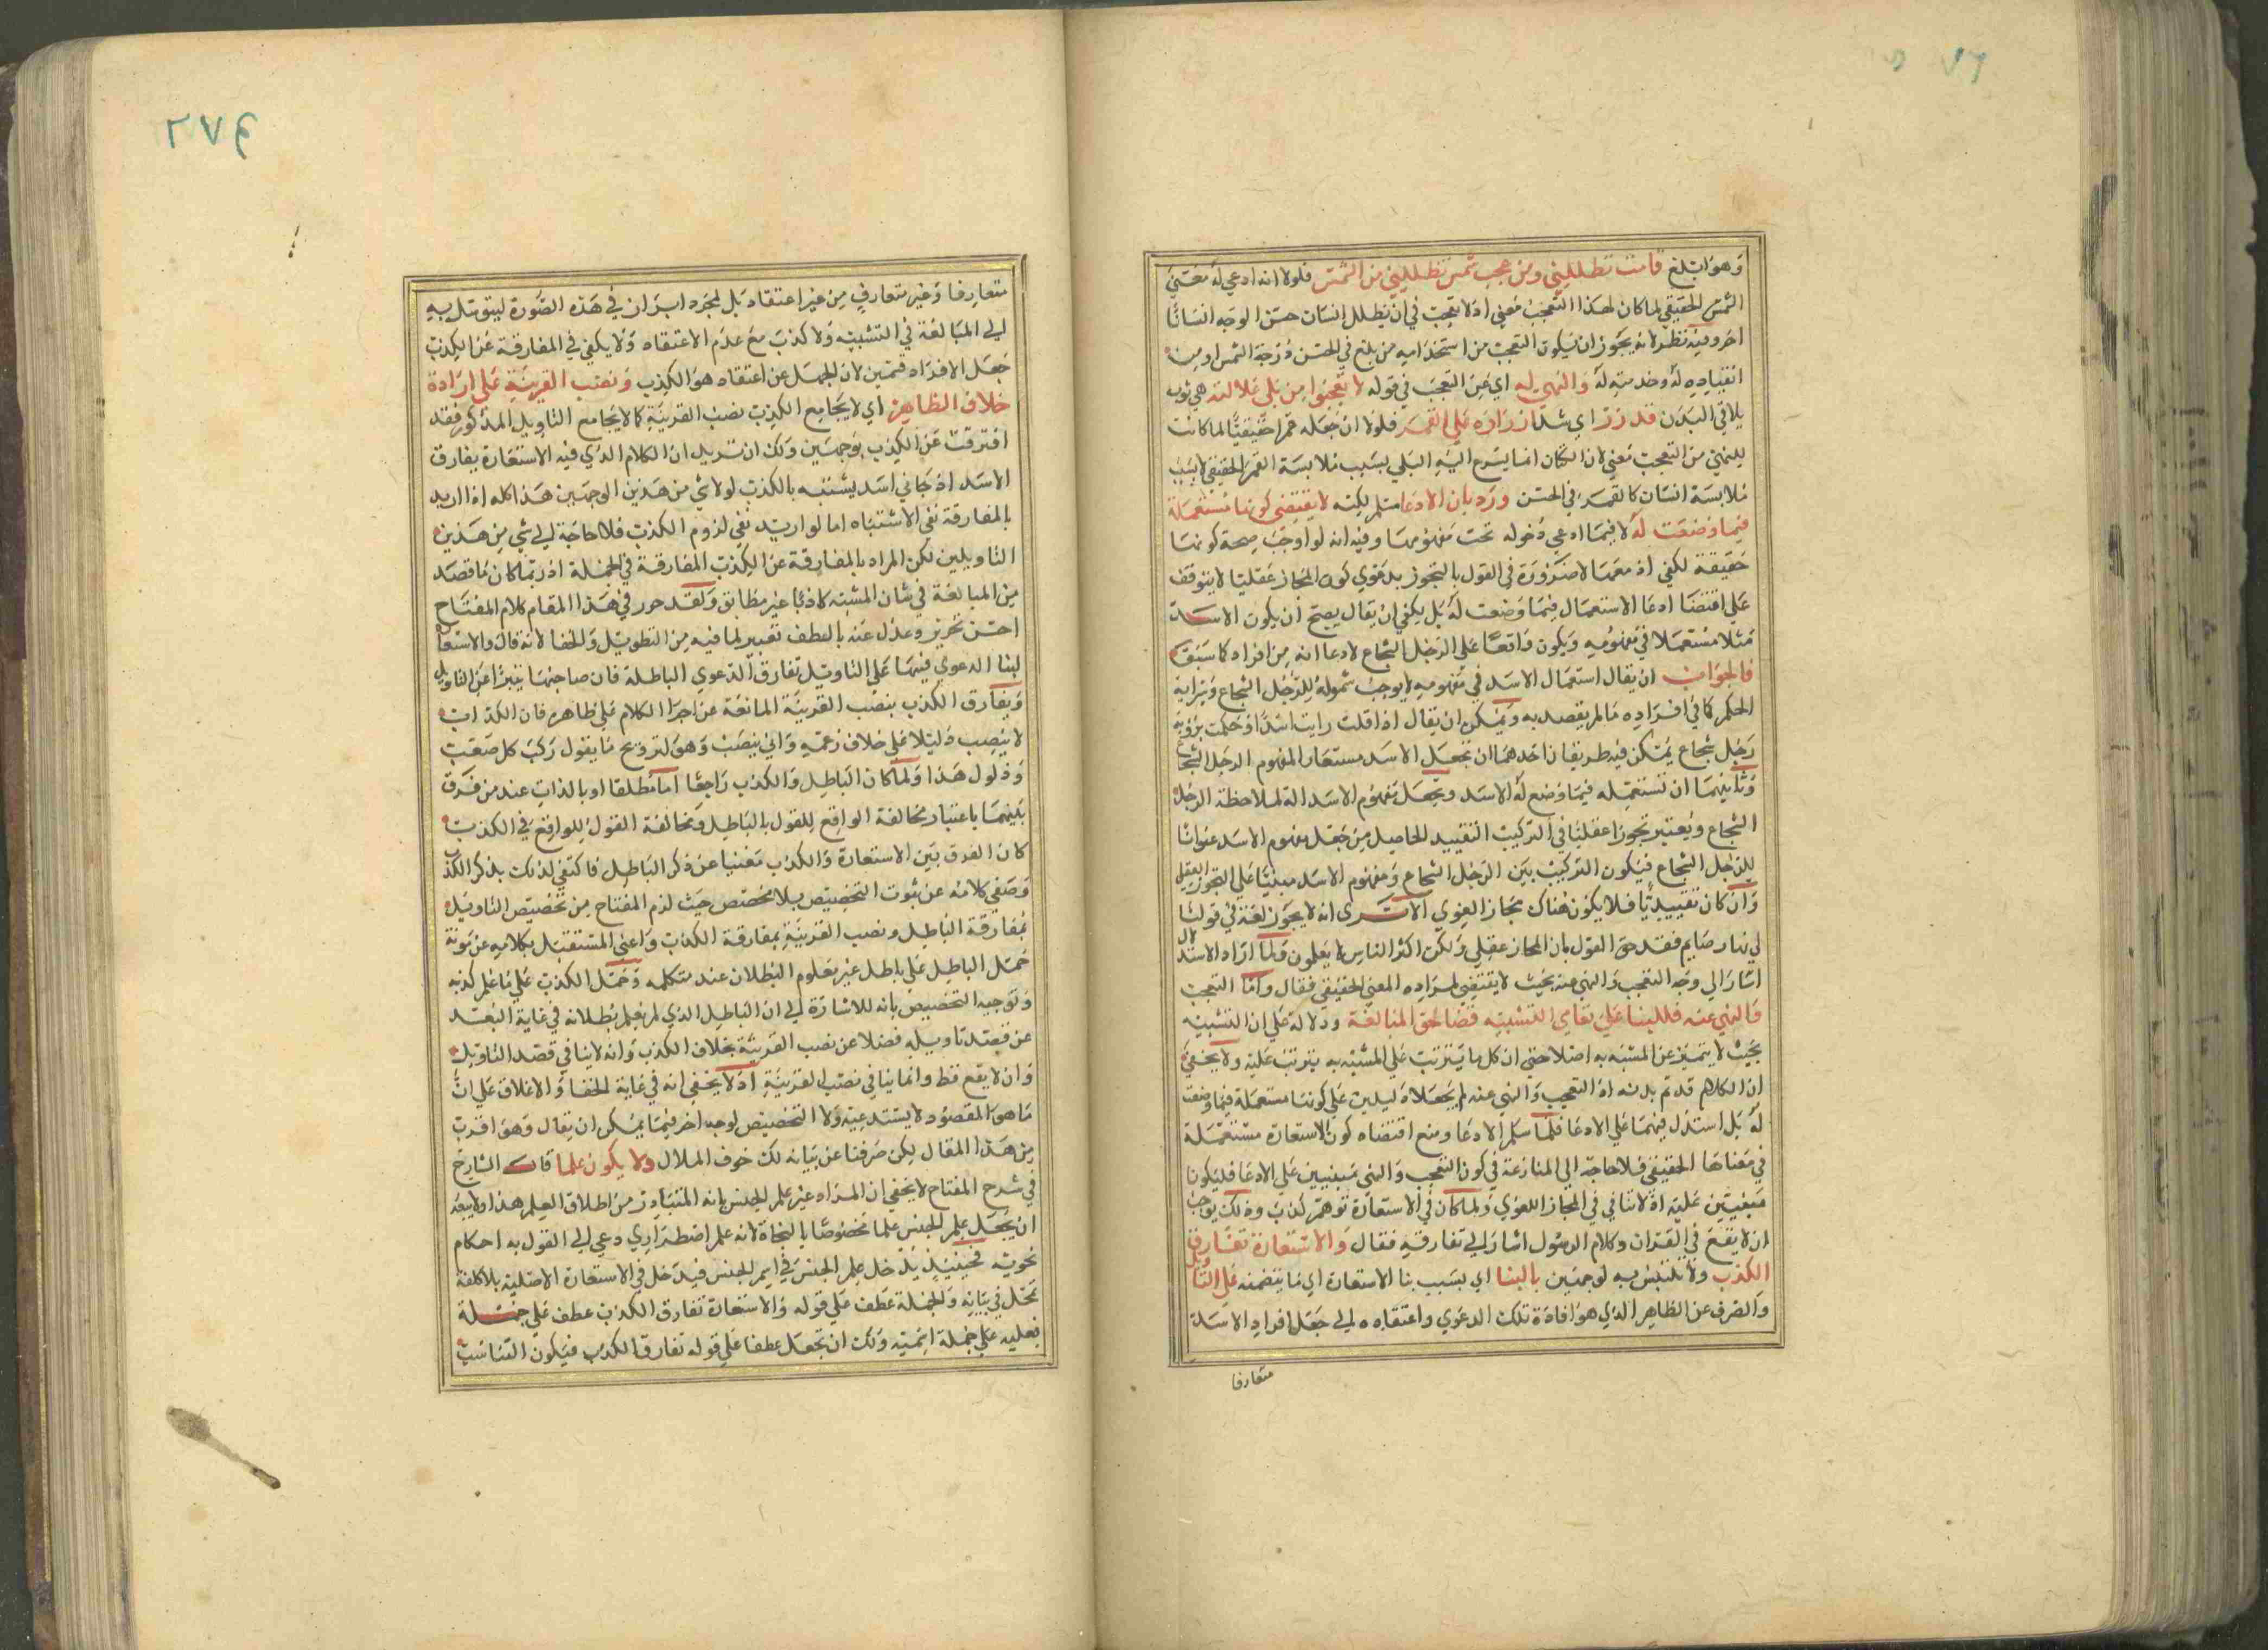 وهو ابلغ قامت تظللني ومن عجب شمس تظللني من الشمس فلولا انه ادعي له معني
الشمس الحقيقي لما كان لهذا التعجب معني اذ لا تعجب في ان يظلل انسان حسن الوجه انسانا
اخر وفيه نظر لانه يجوز ان يكون التعجب من استخدامه من بلغ في الحسن درجة الشمس او من
انقياده له وخدمته له والنهي له اي عن التعجب في قوله لا تعجبوا من بلي غلالته هي ثوب
يلاقي البدن قد زر اي شد ازراره علي القمر فلولا ان جعله قمرا حقيقيا لما كانت
للنهي من التعجب معني لان الكتان انما يسرع اليه البلي بسبب ملابسة القمر الحقيقي لا بسبب
ملابسة انسان كالقمر في الحسن ورد بان الادعا مسلم لكنه لا يقتضي كونها مستعملة
فيما وضعت له لا فيما ادعي دخوله تحت مفهومها وفيه انه لو اوجب صحة كونها
حقيقة لكفي اذ معها لا ضرورة في القول بالتجوز بدعوي كون المجاز عقليا لا يتوقف
علي اقتضا ادعا الاستعمال فيما وضعت له بل يكفي ان يقال يصح ان يكون الاسد
مثلا مستعملا في مفهومه ويكون واقعا علي الرجل الشجاع لادعا انه من افراده كما سبق
فالجواب ان يقال استعمال الاسد في مفهومه لا يوجب شموله للرجل الشجاع وسراية
الحكم كما في افراده ما لم يقصد به ويمكن ان يقال اذا قلت رايت اسدا وحكمت برؤية
رجل شجاع يمكن فيه طريقان احدهما ان تجعل الاسد مستعارا لمفهوم الرجل الشجاع
وثانيهما ان تستعمله فيما وضع له الاسد وتجعل مفهوم الاسد الة لملاحظة الرجل
الشجاع ويعتبر تجوزا عقليا في التركيب التقييد الحاصل من جعل مفهوم الاسد عنوانا
للرجل الشجاع فيكون التركيب بين الرجل الشجاع ومفهوم الاسد مبنيا علي التجوز العقلي
وان كان تقييديا فلا يكون هناك مجاز لغوي الا تري انه لا يجوز لغة في قولنا
لي نهار صايم فقد حق القول بان المجاز عقلي ولكن اكثر الناس لا يعلمون ولما اراد الاستدلال
اشار الي وجه التعجب والنهي عنه بحيث لا يقتضي لمراده المعني الحقيقي فقال واما التعجب
والنهي عنه فللبنا علي تناسي التشبيه قضا لحق المبالغة ودلالة علي ان التشبيه
بحيث لا يتميز عن المشبه به اصلا حتي ان كل ما يترتب علي المشبه به يترتب عليه ولا يخفي
ان الكلام قد تم بدونه اذ التعجب والنهي عنه لم يجعلاه ليدين علي كونها مستعملة فيما وضعت
له بل استدل فيهما علي الادعا فلما سلم الادعا ومنع اقتضاه كون الاستعارة مستعملة
في معناها الحقيقي فلا حاجة الي المنازعة في كون التعجب والنهي مبنيين علي الادعا فليكونا
مبنيين عليه اذ لا تنافي في المجاز اللغوي ولما كان في الاستعارة توهم كذب وذلك يوجب
ان لا يقع في القران وكلام الرسول اشار الي تفارقه فقال والاستعارة تفارق
الكذب ولا تلتبس به لوجهين بالبنا اي بسبب بنا الاستعارة اي ما يتضمنه علي التاويل
والصرف عن الظاهر الذي هو افادة تلك الدعوي واعتقاده الي جعل افراد الاسد
متعارفا
٢٧٤
متعارفا وغير متعارف من غير اعتقاد بل لمجرد ابراز في هذه الصورة ليتوسل به
الي المبالغة في التشبيه ولا كذب مع عدم الاعتقاد ولا يكفي في المفارقة عن الكذب
جعل الافراد قسمين لان الجهل عن اعتقاد هو الكذب ونصب القرينة علي ارادة
خلاف الظاهر اي لا يجامع الكذب نصب القرينة كما لا يجامع التاويل المذكور فقد
افترقت عن الكذب بوجهين ولك ان تريد ان الكلام الذي فيه الاستعارة يفارق
الاسد اذ جاني اسد يشتبه بالكذب لولا شي من هذين الوجهين هذا كله اذا اريد
بالمفارقة نفي الاشتباه اما لو اريد نفي لزوم الكذب فلا حاجة الي شي من هذين
التاويلين لكن المراد بالمفارقة عن الكذب المفارقة في الجملة اذ ربما كان ما قصد
من المبالغة في شان المشبه كاذبا غير مطابق ولقد حرر في هذا المقام كلام المفتاح
احسن تحرير وعدل عنه بالعطف تعبير لما فيه من التطويل والخفا لانه قال والاستعا
لبنا الدعوي فيهما علي التاويل تفارق الدعوي الباطلة فان صاحبها يتبرا عن التاويل
ويفارق الكذب بنصب القرينة المانعة عن اجرا الكلام علي ظاهره فان الكذاب
لا ينصب دليلا علي خلاف زعمه واني ينصب وهو لترويج ما يقول ركب كل صعب
وذلول هذا ولما كان الباطل والكذب راجعا اما مطلقا او بالذات عند من فرق
بينهما باعتبار مخالفة الواقع للقول بالباطل ومخالفة القول للواقع في الكذب
كان الفرق بين الاستعارة والكذب مغنيا عن ذكر الباطل فاكتفي لذلك بذكر الكذب
وصفي كلامه عن شوب التخصيص بلا مخصص حيث لزم المفتاح من تخصيص التاويل
بمفارقة الباطل ونصب القرينة بمفارقة الكذب واغني المستقبل بكلامه عن مونة
حمل الباطل علي باطل غير معلوم البطلان عند متكلمه وحمل الكذب علي ما علم كذبه
وتوجيه التخصيص بانه للاشارة الي ان الباطل الذي لم يعلم بطلانه في غاية البعد
عن قصد تاويله فضلا عن نصب القرينة بخلاف الكذب وانه لا ينافي قصد التاويل
وان لا يقع قط وانما ينافي نصب القرينة اذ لا يخفي انه في غاية الخفا والاغلاق علي ان
ما هو المقصود لا يستدعيه ولا التخصيص لوجه اخر فيما يمكن ان يقال وهو اقرب
من هذا المقال لكن صرفنا عن بيانه لك خوف الملال ولا يكون علما قال الشارح
في شرح المفتاح لا يخفي ان المراد غير علم الجنس بانه المتبادر من اطلاق العلم هذا ولا يبعد
ان يجعل علم الجنس علما مخصوصا بالنحاة لانه علم اضطراري دعي الي القول به احكام
نحوية فحينيذ يدخل علم الجنس في اسم الجنس فيدخل في الاستعارة الاصلية بلا كلفة
تمحل في بيانه والجملة عطف علي قوله والاستعارة تفارق الكذب عطف علي جملة
فعليه علي جملة اسمية ولك ان تجعل عطفا علي قوله تفارق الكذب فيكون التناسب